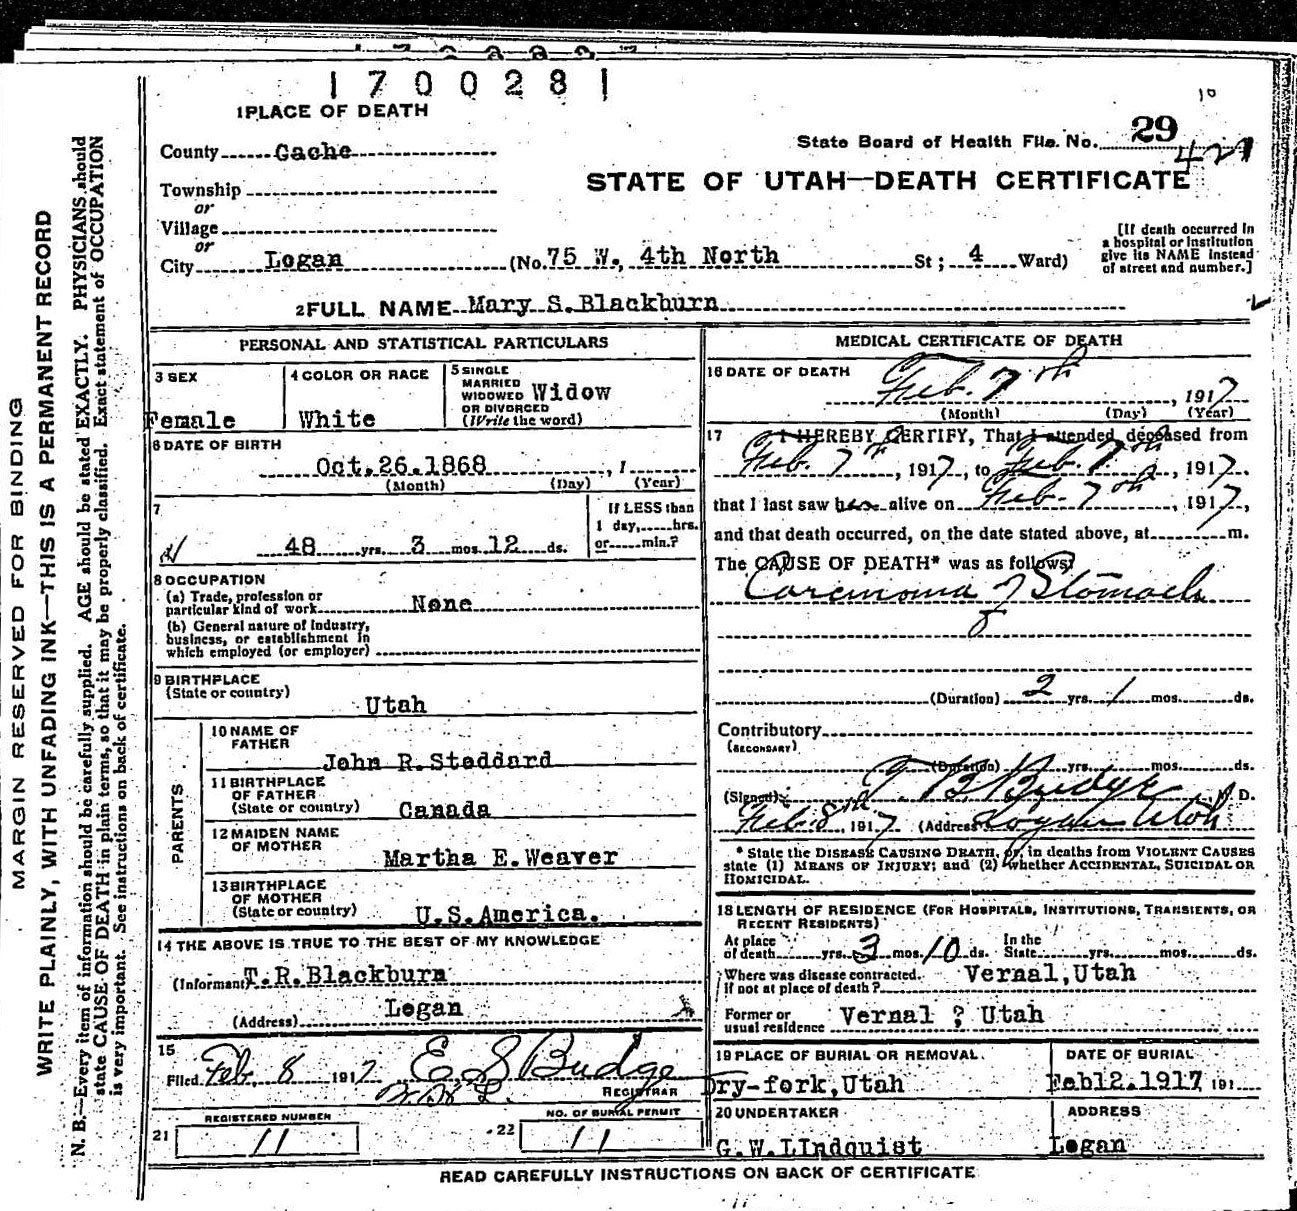 1700281
10
1 PLACE OF DEATH
State Board of Health File. No. 29
421
County Cache
STATE OF UTAH—DEATH CERTIFICATE
Township
or
Village
or
City Logan (No. 75 W., 4th North St; 4 Ward)
[If death occurred in
a hospital or institution
give its NAME instead
of street and number.]
2 FULL NAME Mary S. Blackburn
PERSONAL AND STATISTICAL PARTICULARS
3 SEX
Female
4 COLOR OR RACE
White
5 SINGLE
MARRIED
WIDOWED
OR DIVORCED
(Write the word)
Widow
6 DATE OF BIRTH
Oct. 26. 1868, 1
(Month) (Day) (Year)
7
48 yrs. 3 mos. 12 ds.
If LESS than
1 day, hrs.
or min.?
8 OCCUPATION
(a) Trade, profession or
particular kind of work None
(b) General nature of industry,
business, or establishment in
which employed (or employer)
9 BIRTHPLACE
(State or country)
Utah
PARENTS
10 NAME OF
FATHER
John R. Stoddard
11 BIRTHPLACE
OF FATHER
(State or country) Canada
12 MAIDEN NAME
OF MOTHER
Martha E. Weaver
13 BIRTHPLACE
OF MOTHER
(State or country) U.S. America.
14 THE ABOVE IS TRUE TO THE BEST OF MY KNOWLEDGE
(Informant) T. R. Blackburn
(Address) Logan
15
Filed Feb, 8 1917 E S Budge
REGISTRAR
REGISTERED NUMBER
21 11
NO. OF BURIAL PERMIT
22 11
MEDICAL CERTIFICATE OF DEATH
16 DATE OF DEATH
Feb. 7th, 1917
(Month) (Day) (Year)
17 I HEREBY CERTIFY, That I attended deceased from
Feb. 7th, 1917, to Feb. 7th, 1917.
that I last saw her alive on Feb. 7th, 1917,
and that death occurred, on the date stated above, at m.
The CAUSE OF DEATH* was as follows:
Carcinoma of Stomach
(Duration) 2 yrs. 1 mos. ds.
Contributory
(SECONDARY)
(Duration) yrs. mos. ds.
(Signed) T. B. Budge M D.
Feb. 8th, 1917 (Address) Logan Utah
* State the DISEASE CAUSING DEATH, or, in deaths from VIOLENT CAUSES
state (1) MEANS OF INJURY; and (2) whether ACCIDENTAL, SUICIDAL OR
HOMICIDAL.
18 LENGTH OF RESIDENCE (FOR HOSPITALS, INSTITUTIONS, TRANSIENTS, OR
RECENT RESIDENTS)
At place
of death yrs. 3 mos. 10 ds. In the
State yrs. mos. ds.
Where was disease contracted.
If not at place of death? Vernal, Utah
Former or
usual residence Vernal ? Utah
19 PLACE OF BURIAL OR REMOVAL.
Dry-fork, Utah
DATE OF BURIAL
Feb12. 1917 191
20 UNDERTAKER
G. W. LIndquist
ADDRESS
Logan
READ CAREFULLY INSTRUCTIONS ON BACK OF CERTIFICATE
11
MARGIN RESERVED FOR BINDING
WRITE PLAINLY, WITH UNFADING INK—THIS IS A PERMANENT RECORD
N. B.—Every item of information should be carefully supplied. AGE should be stated EXACTLY. PHYSICIANS should
state CAUSE OF DEATH in plain terms, so that it may be properly classified. Exact statement of OCCUPATION
is very important. See instructions on back of certificate.